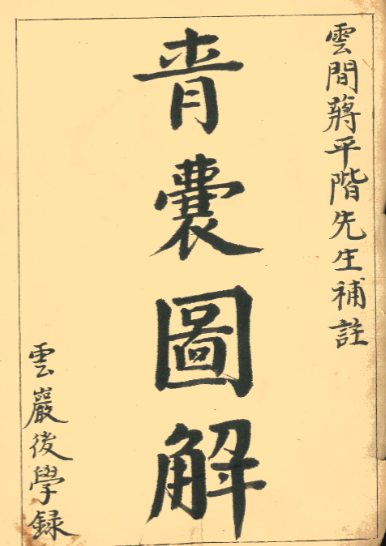 雲間蔣平階先生補註
青囊圖解
雲巖後學録